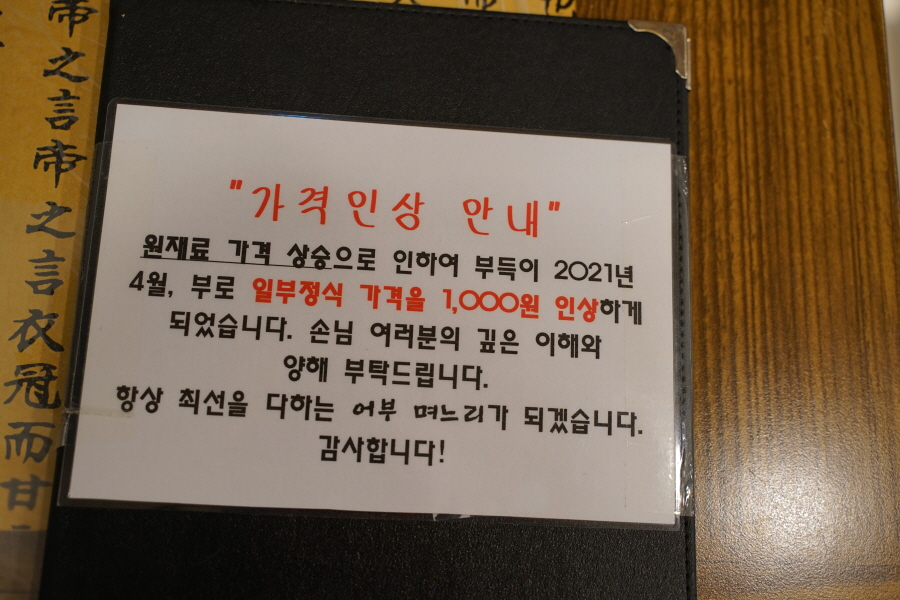 帝之言帝之言衣冠而甘
"가격인상 안내"
원재료 가격 상승으로 인하여 부득이 2021년
4월, 부로 일부정식 가격을 1,000원 인상하게
되었습니다. 손님 여러분의 깊은 이해와
양해 부탁드립니다.
항상 최선을 다하는 어부 며느리가 되겠습니다.
감사합니다!